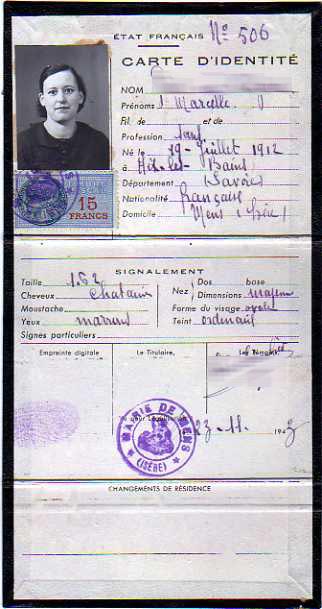 ÉTAT FRANÇAIS Nº 506
CARTE D'IDENTITÉ
NOM
Prénoms Marcelle
Fil de et de
Profession
Né le 19 Juillet 1912
à Aix-les-Bains
Département Savoie
Nationalité française
Domicile Mens (Isère)
15
FRANCS
SIGNALEMENT
Taille 1.62
Cheveux chatains
Moustache
Yeux marrons
Signes particuliers
Nez Dos base
Dimensions moyen
Forme du visage ovale
Teint ordinaire
Empreinte digitale
Le Titulaire,
Les Témoins,
MAIRIE DE MENS
(ISÈRE)
23-11-1943
CHANGEMENTS DE RÉSIDENCE